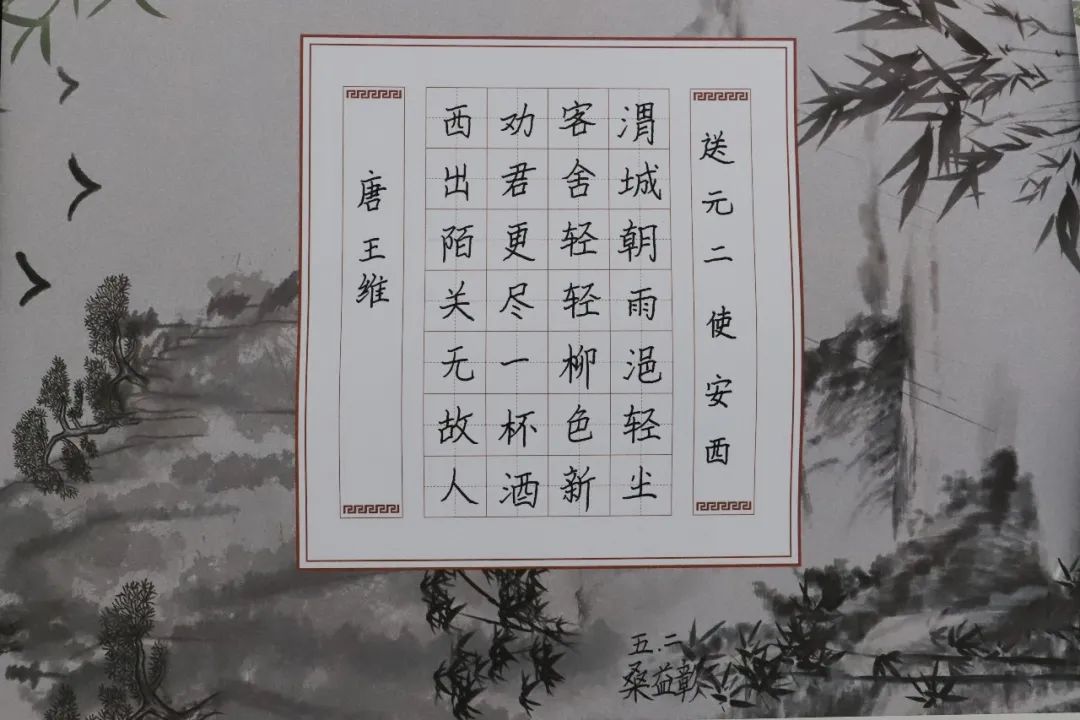 送元二使安西
渭城朝雨浥轻尘
客舍轻轻柳色新
劝君更尽一杯酒
西出陌关无故人
唐王维
五.二
桑益彰